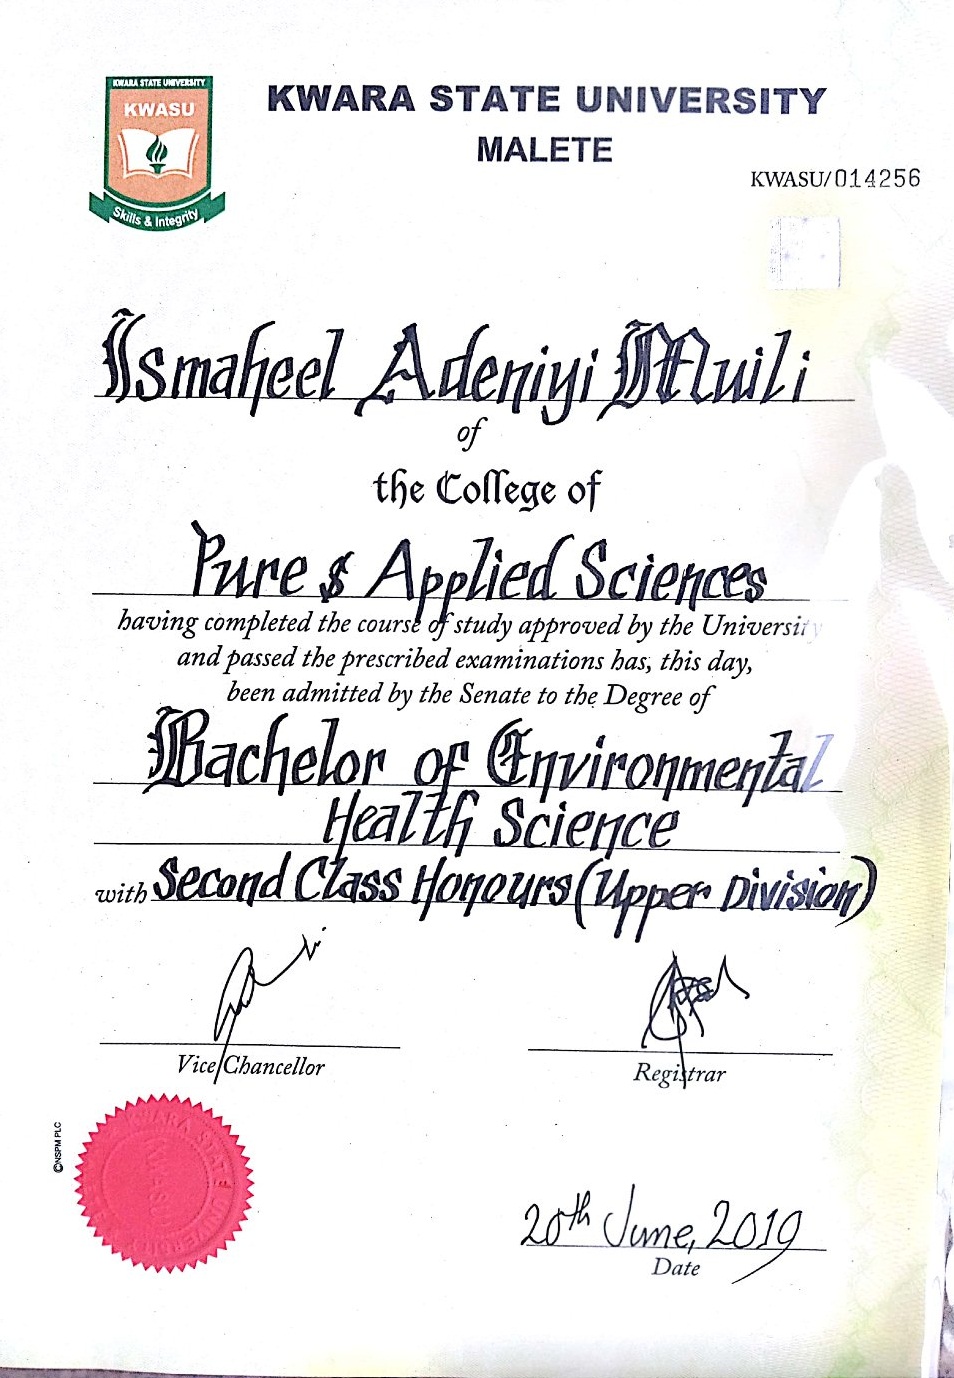 KWARA STATE UNIVERSITY
KWASU
Skills & Integrity
KWARA STATE UNIVERSITY
MALETE
KWASU/014256
Ismaheel Adeniyi Muili
of
the College of
Pure & Applied Sciences
having completed the course of study approved by the University
and passed the prescribed examinations has, this day,
been admitted by the Senate to the Degree of
Bachelor of Environmental
Health Science
with Second Class Honours (Upper Division)
Vice Chancellor
Registrar
©NSPM PLC
KWARA STATE UNIVERSITY
KWASU
20th June, 2019
Date